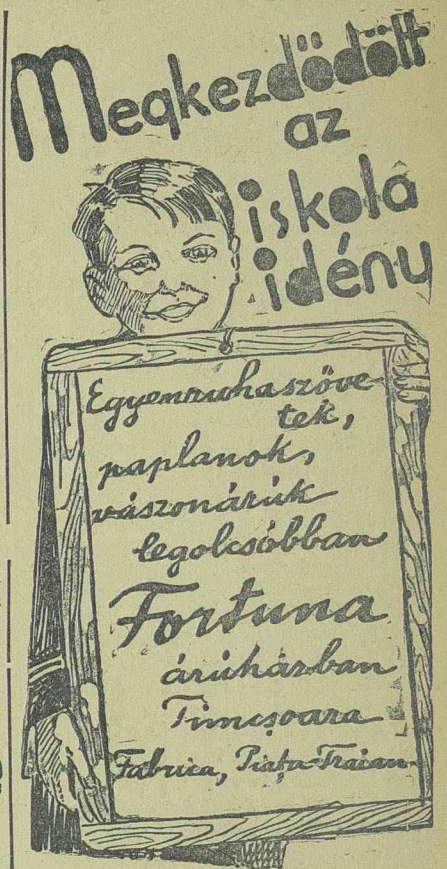 Megkezdödött
az
iskola
idény
Egyenruhaszöve-
tek,
paplanok,
vászonárúk
legolcsóbban
Fortuna
árúházban
Timișoara
Fabrica, Piața-Traian